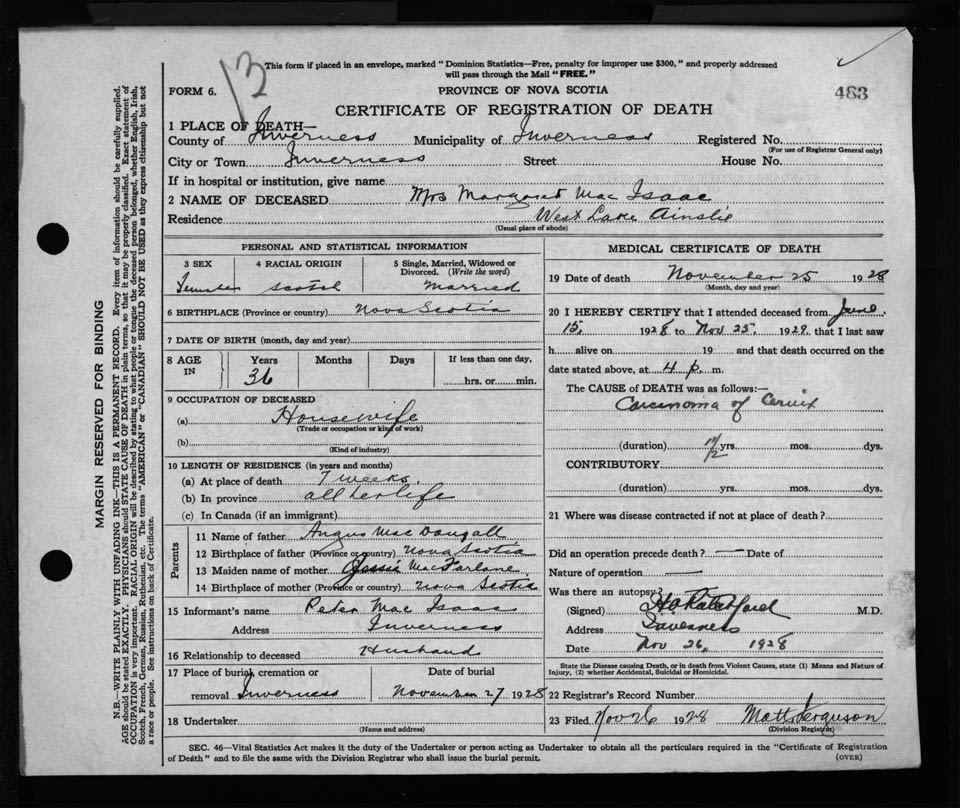 13
This form if placed in an envelope, marked "Dominion Statistics—Free, penalty for improper use $300," and properly addressed
will pass through the Mail "FREE."
FORM 6.
PROVINCE OF NOVA SCOTIA
483
CERTIFICATE OF REGISTRATION OF DEATH
1 PLACE OF DEATH—
County of Inverness Municipality of Inverness Registered No.
(For use of Registrar General only)
City or Town Inverness Street House No.
If in hospital or institution, give name
2 NAME OF DECEASED Mrs Margaret Mac Isaac
Residence West Lake Ainslie
(Usual place of abode)
PERSONAL AND STATISTICAL INFORMATION
3 SEX 4 RACIAL ORIGIN 5 Single, Married, Widowed or
Divorced. (Write the word)
Female Scotch Married
6 BIRTHPLACE (Province or country) Nova Scotia
7 DATE OF BIRTH (month, day and year)
8 AGE IN Years Months Days If less than one day,
36 hrs. or min.
9 OCCUPATION OF DECEASED
(a) Housewife
(Trade or occupation or kind of work)
(b)
(Kind of industry)
10 LENGTH OF RESIDENCE (in years and months)
(a) At place of death 7 weeks
(b) In province all her life
(c) In Canada (if an immigrant)
Parents
11 Name of father Angus Mac Dougall
12 Birthplace of father (Province or country) Nova Scotia
13 Maiden name of mother Jessie MacFarlane
14 Birthplace of mother (Province or country) Nova Scotia
15 Informant's name Peter Mac Isaac
Address Inverness
16 Relationship to deceased Husband
17 Place of burial, cremation or Date of burial
removal Inverness November 27 1928
18 Undertaker
(Name and address)
MEDICAL CERTIFICATE OF DEATH
19 Date of death November 25 1928
(Month, day and year)
20 I HEREBY CERTIFY that I attended deceased from June
15, 1928 to Nov 25, 1928, that I last saw
h alive on 19 and that death occurred on the
date stated above, at 4 p. m.
The CAUSE of DEATH was as follows:—
Carcinoma of Cervix
(duration) yrs. mos. dys.
CONTRIBUTORY
(duration) yrs. mos. dys.
21 Where was disease contracted if not at place of death?
Did an operation precede death? — Date of
Nature of operation —
Was there an autopsy?
(Signed) M.D.
Address Inverness
Date Nov 26, 1928
State the Disease causing Death, or in death from Violent Causes, state (1) Means and Nature of
Injury, (2) whether Accidental, Suicidal or Homicidal.
22 Registrar's Record Number
23 Filed Nov 26 1928 Matt Ferguson
(Division Registrar)
SEC. 46—Vital Statistics Act makes it the duty of the Undertaker or person acting as Undertaker to obtain all the particulars required in the "Certificate of Registration
of Death" and to file the same with the Division Registrar who shall issue the burial permit. (OVER)
MARGIN RESERVED FOR BINDING
N.B.—WRITE PLAINLY WITH UNFADING INK—THIS IS A PERMANENT RECORD. Every item of information should be carefully supplied.
AGE should be stated EXACTLY. PHYSICIANS should STATE CAUSE OF DEATH in plain terms, so that it may be properly classified. Exact statement of
OCCUPATION is very important. RACIAL ORIGIN will be described by stating to what people or tongue the deceased person belonged, whether English, Irish,
Scotch, French, German, Russian, Ruthenian, etc. The terms "AMERICAN" or "CANADIAN" SHOULD NOT BE USED as they express citizenship but not
a race or people. See instructions on back of Certificate.